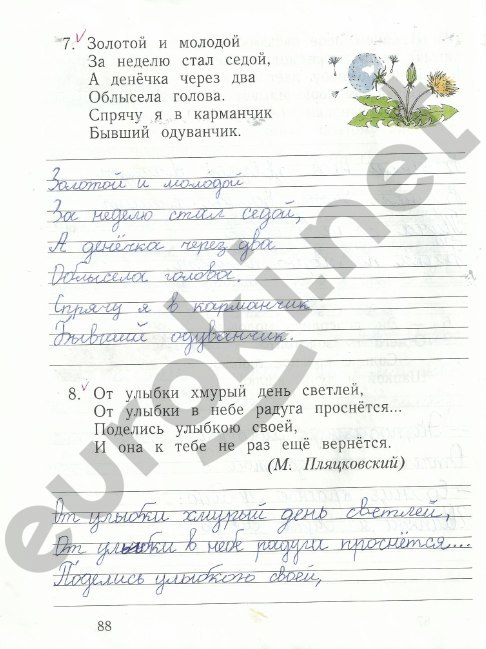 7. Золотой и молодой
За неделю стал седой,
А денёчка через два
Облысела голова.
Спрячу я в карманчик
Бывший одуванчик.
Золотой и молодой
За неделю стал седой,
А денёчка через два
Облысела голова.
Спрячу я в карманчик
Бывший одуванчик.
8. От улыбки хмурый день светлей,
От улыбки в небе радуга проснётся...
Поделись улыбкою своей,
И она к тебе не раз ещё вернётся.
(М. Пляцковский)
От улыбки хмурый день светлей,
От улыбки в небе радуга проснётся....
Поделись улыбкою своей,
88
euroki.net